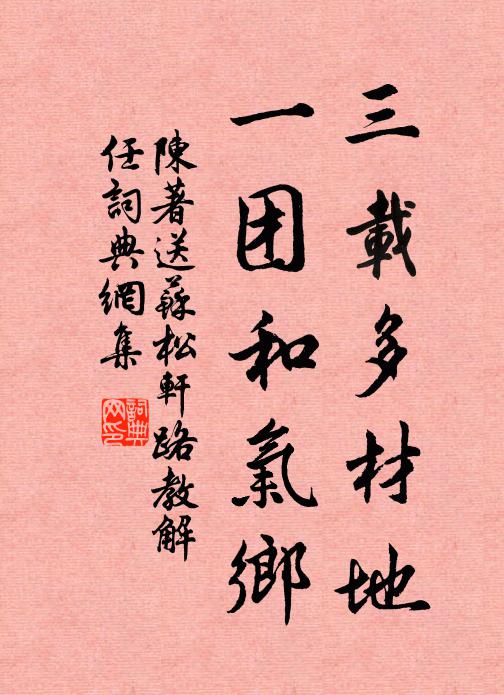 三載多材地
一团和氣鄉
陳著送蘇松軒路教解
任詞典網集
詞典网印